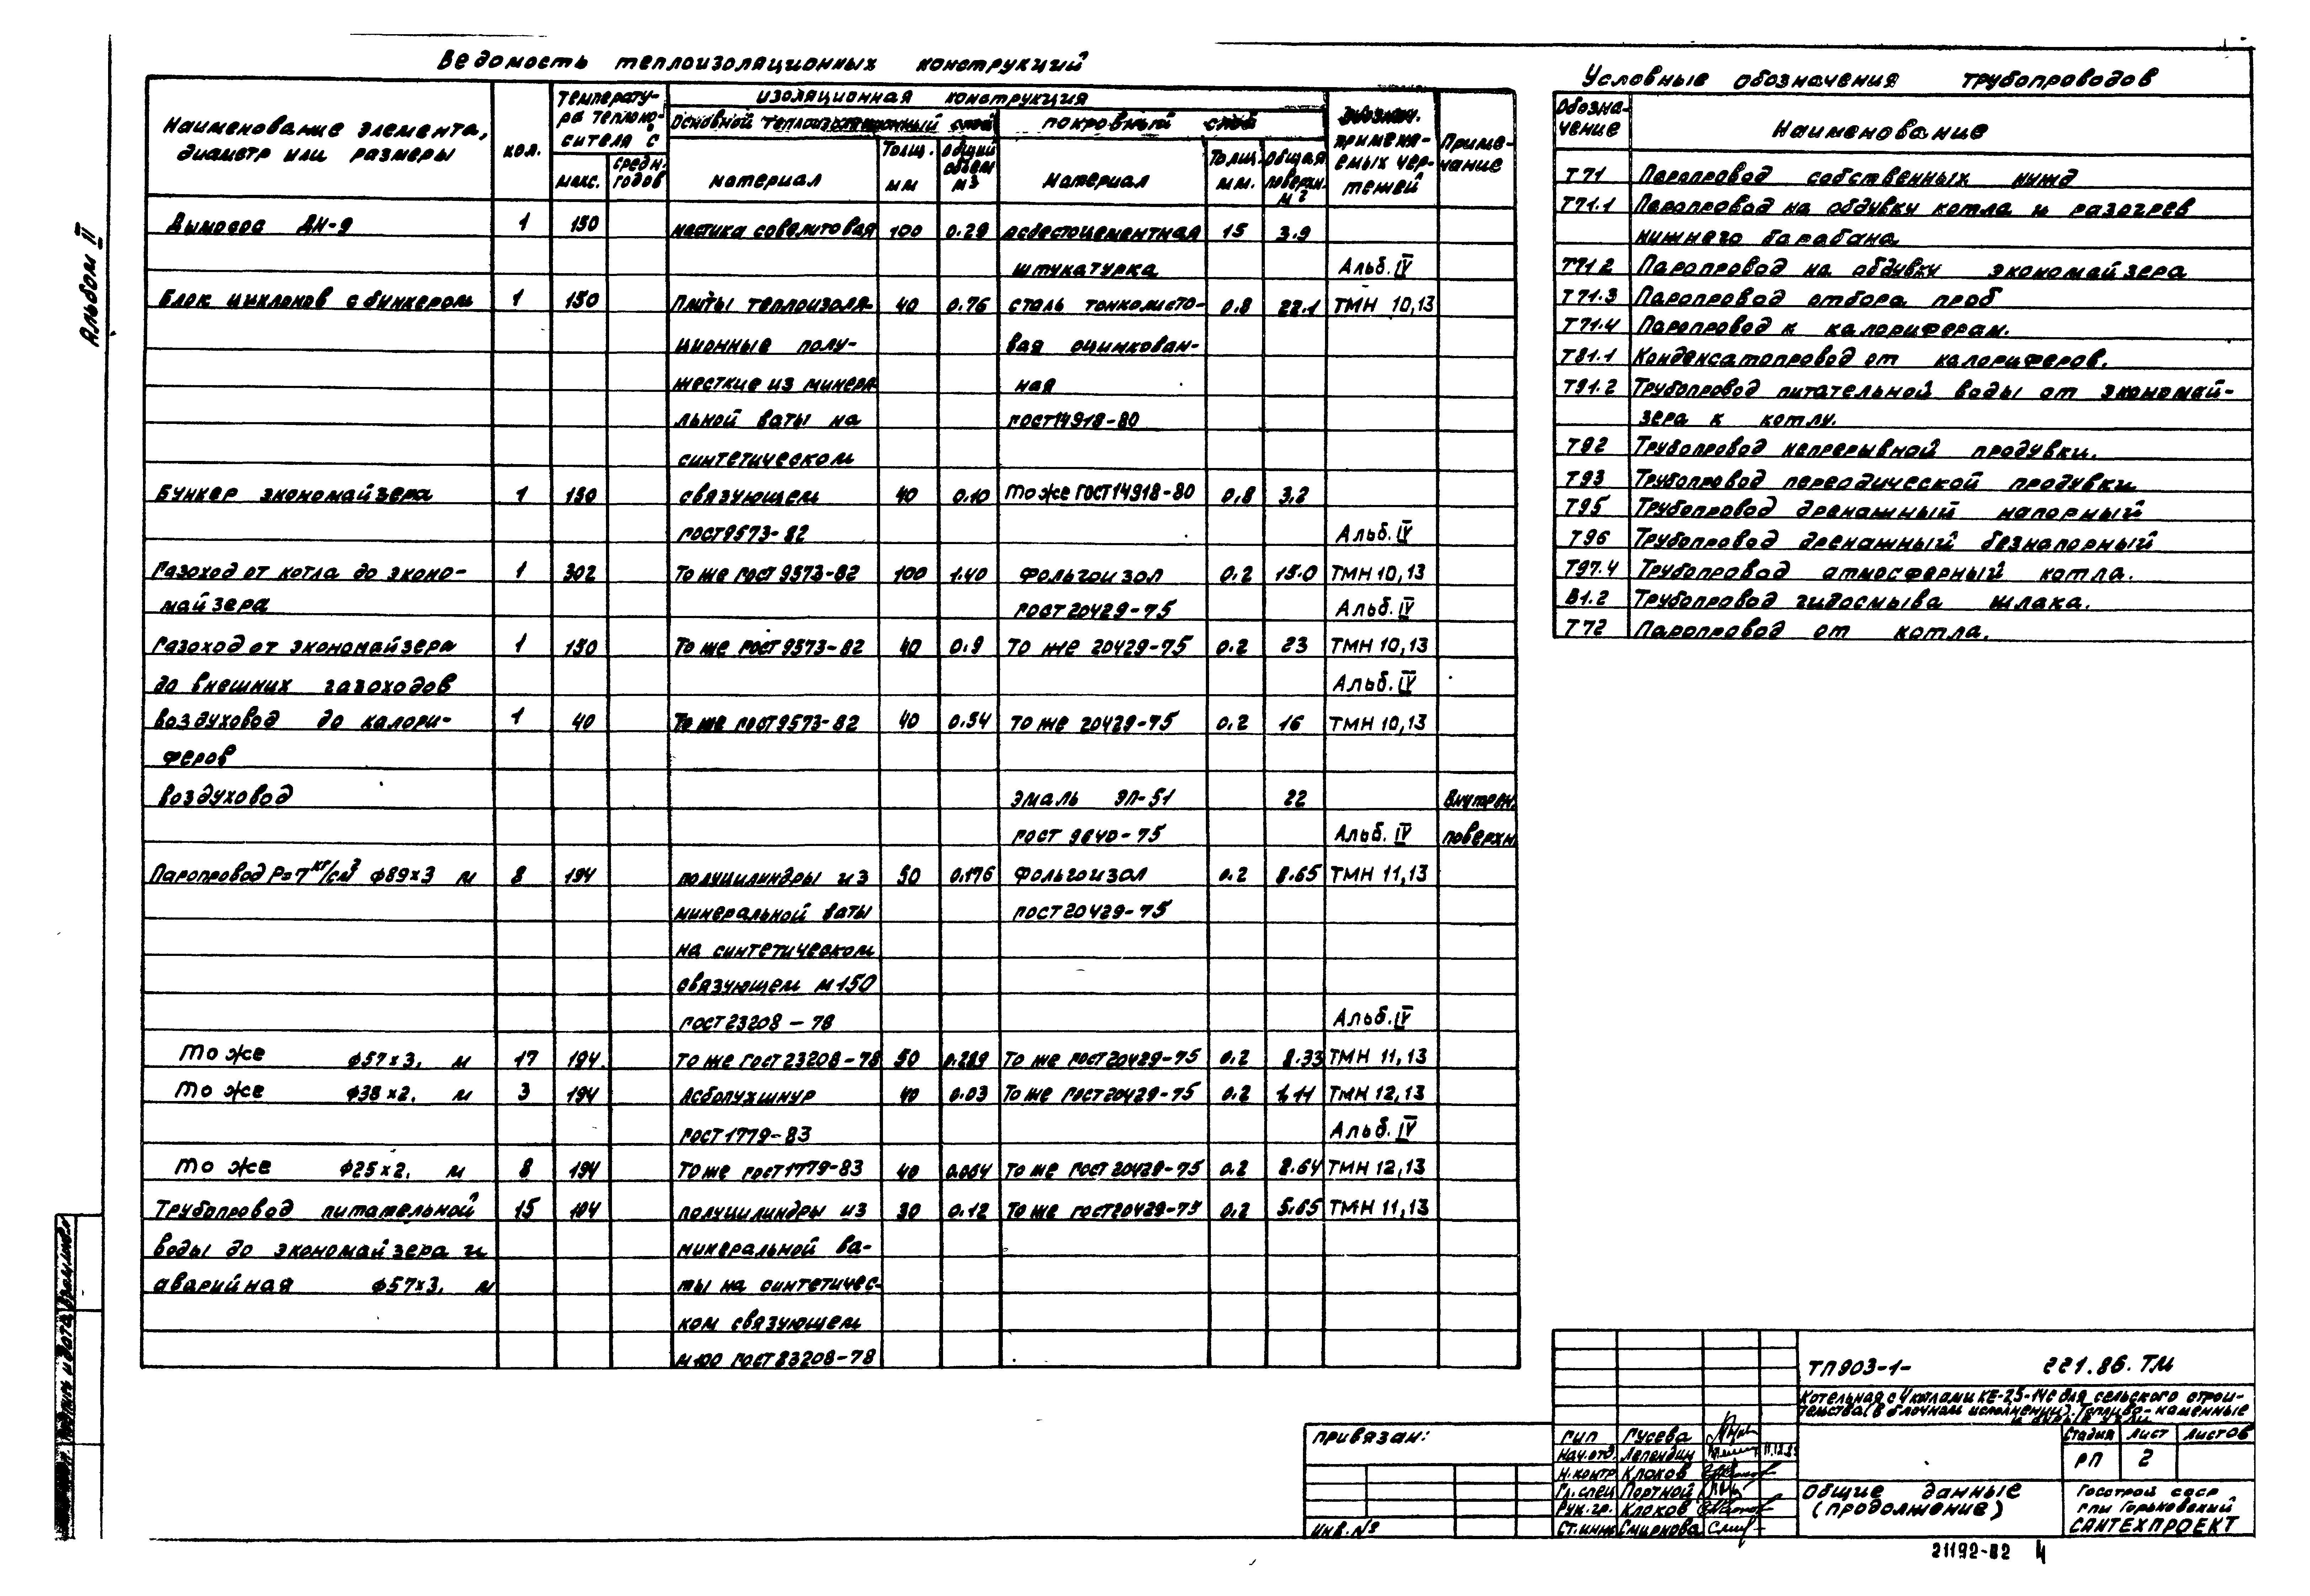 Ведомость теплоизоляционных конструкций
Наименование элемента, диаметр или размеры
кол.
Температура теплоносителя °С
макс.
средн. годов
изоляционная конструкция
Основной теплоизоляционный слой
покровный слой
материал
Толщ. мм
общий объем м3
материал
Толщ. мм.
общая поверхн. м2
применяемых чертежей
Примечание
Дымосос ДН-9 1 150 мастика совелитовая 100 0.29 асбестоцементная 15 3.9
штукатурка Альб. IV
Блок циклонов с бункером 1 150 Плиты теплоизоля- 40 0.76 сталь тонколисто- 0.8 22.1 ТМН 10,13
ционные полу- вая оцинкован-
жесткие из минера- ная
льной ваты на ГОСТ14918-80
синтетическом
Бункер экономайзера 1 150 связующем 40 0.10 То же ГОСТ14918-80 0.8 3.2
ГОСТ9573-82 Альб. IV
Газоход от котла до эконо- 1 302 То же ГОСТ 9573-82 100 1.40 Фольгоизол 0.2 15.0 ТМН 10,13
майзера ГОСТ20429-75 Альб. IV
Газоход от экономайзера 1 150 То же ГОСТ9573-82 40 0.9 То же 20429-75 0.2 23 ТМН 10,13
до внешних газоходов Альб. IV
Воздуховод до калори- 1 40 То же ГОСТ9573-82 40 0.54 То же 20429-75 0.2 16 ТМН 10,13
феров
Воздуховод эмаль ЭП-51 22 Внутрен.
ГОСТ 9640-75 Альб. IV поверхн.
Паропровод Р=7кг/см² ф89х3 м 8 194 полуцилиндры из 50 0.176 Фольгоизол 0.2 8.65 ТМН 11,13
минеральной ваты ГОСТ20429-75
на синтетическом
связующем М150
ГОСТ23208-78 Альб. IV
То же ф57х3, м 17 194 То же ГОСТ23208-78 50 0.289 То же ГОСТ20429-75 0.2 8.33 ТМН 11,13
То же ф38х2, м 3 194 Асбопухшнур 40 0.03 То же ГОСТ20429-75 0.2 1,11 ТМН 12,13
ГОСТ1779-83 Альб. IV
То же ф25х2, м 8 194 То же ГОСТ1779-83 40 0.064 То же ГОСТ20429-75 0.2 2.64 ТМН 12,13
Трубопровод питательной 15 104 полуцилиндры из 30 0.12 То же ГОСТ20429-75 0.2 5.65 ТМН 11,13
воды до экономайзера и минеральной ва-
аварийная ф57х3, м ты на синтетичес-
ком связующем
М100 ГОСТ23208-78
Условные обозначения трубопроводов
Обозначение Наименование
Т71 Паропровод собственных нужд
Т71.1 Паропровод на обдувку котла и разогрев
нижнего барабана
Т71.2 Паропровод на обдувку экономайзера
Т71.3 Паропровод отбора проб
Т71.4 Паропровод к калориферам.
Т81.1 Конденсатопровод от калориферов.
Т91.2 Трубопровод питательной воды от экономай-
зера к котлу.
Т92 Трубопровод непрерывной продувки.
Т93 Трубопровод переодической продувки
Т95 Трубопровод дренажный напорный
Т96 Трубопровод дренажный безнапорный
Т97.4 Трубопровод атмосферный котла.
В1.2 Трубопровод гидосмыва шлака.
Т72 Паропровод от котла.
Альбом II
привязан:
Инв. №
ТП903-1- 221.86. ТМ
Котельная с 4 котлами КЕ-2,5-14с для сельского строи-
тельства (в блочном исполнении). Топливо - каменные
ГИП Гусева
Нач.отд. Лапендин
Н.контр Клоков
Гл.спец Портной
Рук.гр. Клоков
Ст.инж Смирнова
Стадия Лист Листов
РП 2
Общие данные
(продолжение)
Госстрой СССР
ГПИ Горьковский
САНТЕХПРОЕКТ
21192-02 4